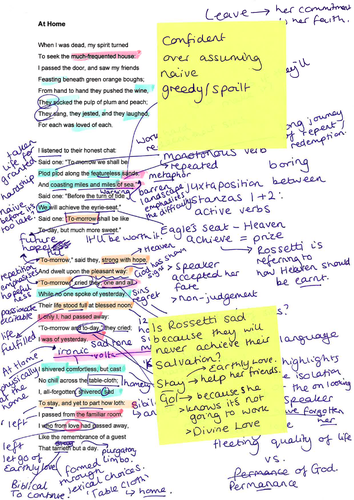 At Home
When I was dead, my spirit turned
To seek the much-frequented house:
I passed the door, and saw my friends
Feasting beneath green orange boughs;
From hand to hand they pushed the wine,
They sucked the pulp of plum and peach;
They sang, they jested, and they laughed,
For each was loved of each.
I listened to their honest chat:
Said one: "To-morrow we shall be
Plod plod along the featureless sands,
And coasting miles and miles of sea."
Said one: "Before the turn of tide
We will achieve the eyrie-seat."
Said one: "To-morrow shall be like
To-day, but much more sweet."
"To-morrow," said they, strong with hope,
And dwelt upon the pleasant way:
"To-morrow," cried they, one and all,
While no one spoke of yesterday.
Their life stood full at blessed noon;
I, only I, had passed away:
"To-morrow and to-day," they cried;
I was of yesterday.
I shivered comfortless, but cast
No chill across the table-cloth;
I, all-forgotten, shivered, sad
To stay, and yet to part how loth:
I passed from the familiar room,
I who from love had passed away,
Like the remembrance of a guest
That tarrieth but a day.
Leave → her commitment
her faith.
Confident
over assuming
naive
greedy/spoilt
long journey
of repent
redemption
monotonous verb
→ repeated
boring
metaphor
barren
landscape
emphasises
the difficulty
working
juxtaposition between
stanzas 1+2:
active verbs
taken
life for
granted
hardship
naive
before it
too late.
future
hopes
It'll be worth it
Eagle's seat - Heaven
achieve = prize
→ Rossetti is
referring to
how Heaven should
be earnt.
→ Heaven
God has shown
→ speaker
accepted her
fate.
→ non-judgement
repetition
emphasises
hopeful
ness
passionate
desirable
life is
fulfilled
Sins
regret
ironic
sad tone
volta
Is Rossetti sad
because they will
never achieve their
Salvation?
→ Earthly Love.
Stay → help her friends.
Go! → because she
knows it's not
going to work
→ Divine Love
language
highlights
isolation
the on looking
speaker
have forgotten
her
At Home
physically
at
home
homely
left
let go of
Earthly love
Biblical
To continue.
formed
through
lexical choices.
purgatory
limbo.
'Table Cloth'
→ home.
fleeting quality of life
vs.
permance of God.
Permanance